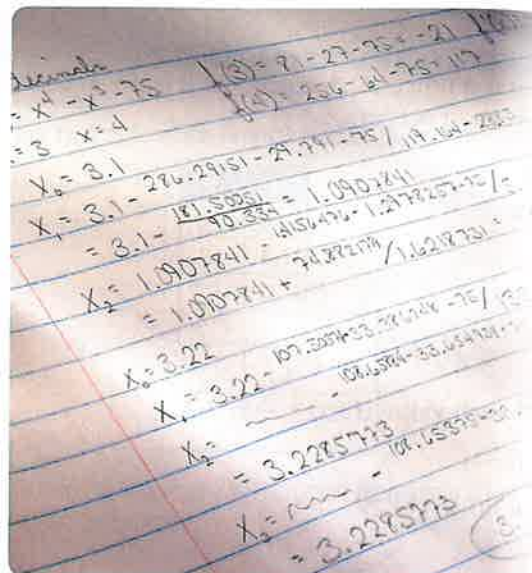 decimals
= x⁴ - x³ - 75 f(3) = 81 - 27 - 75 = -21
= 3 x = 4 f(4) = 256 - 64 - 75 = 117
X₀ = 3.1
X₁ = 3.1 - 286.29151 - 29.791 - 75 / 119.164 - 
= 3.1 - 181.50051 / 90.334 = 1.0907841
X₂ = 1.0907841 - 1.4156476 - 1.2978257 - 75 /
= 1.0907841 + 74.882179 / 1.6218731 =
X₀ = 3.22
X₁ = 3.22 - 107.5007 - 33.386248 - 75 /
X₂ = - 108.6584 - 33.654929 -
= 3.2285773
X₃ = - 108.65375 -
= 3.2285773